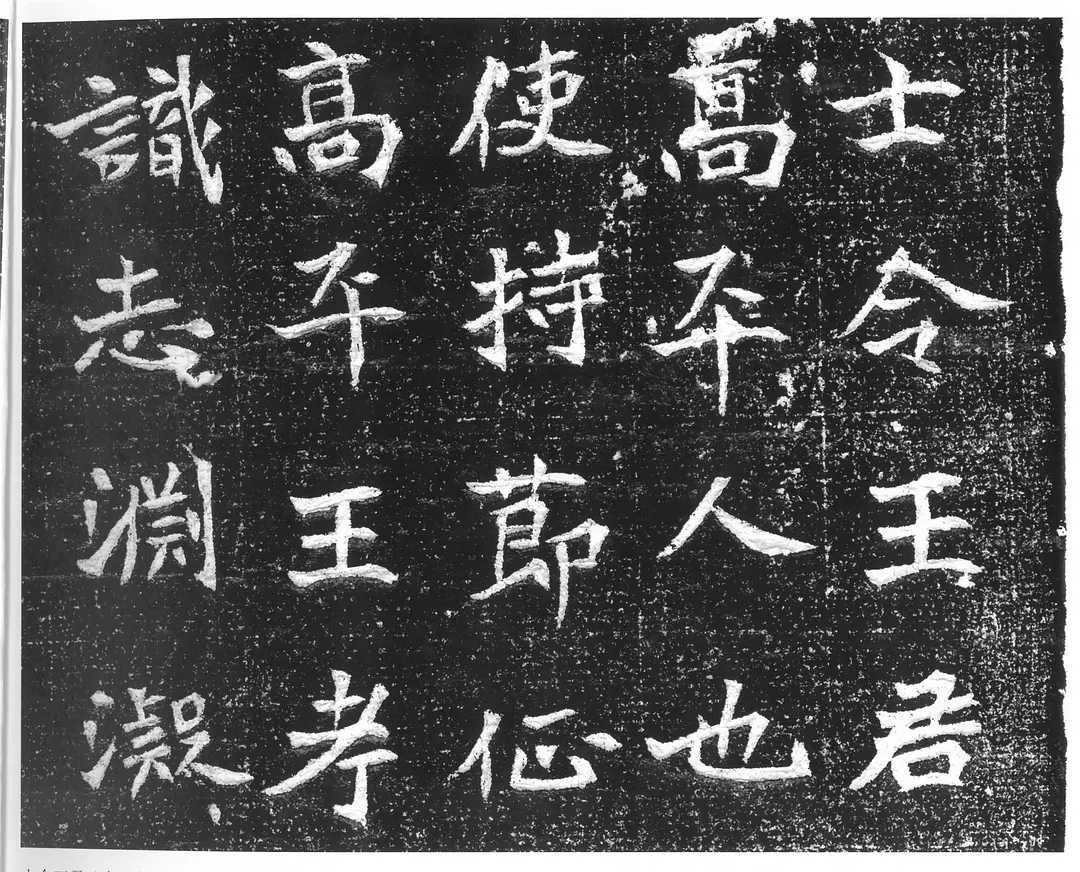 士令王君
高平人也
使持節征
高平王考
識志淵凝